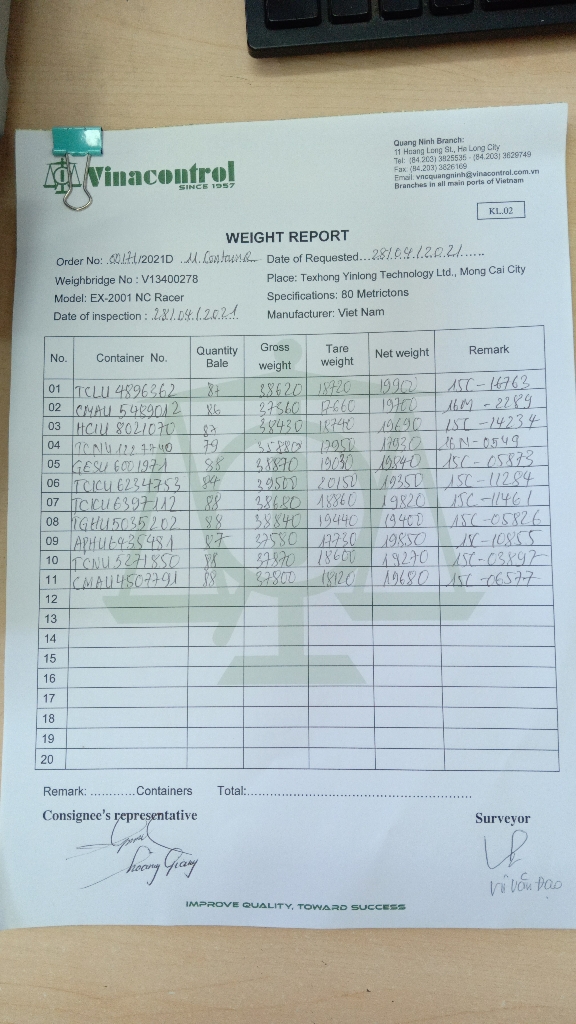 Vinacontrol
SINCE 1957
Quang Ninh Branch:
11 Hoang Long St., Ha Long City
Tel: (84.203) 3825535 - (84.203) 3629749
Fax: (84.203) 3826169
Email: vncquangninh@vinacontrol.com.vn
Branches in all main ports of Vietnam
KL.02
WEIGHT REPORT
Order No: 00171/2021D 11 Container Date of Requested...28/04/2021......
Weighbridge No : V13400278 Place: Texhong Yinlong Technology Ltd., Mong Cai City
Model: EX-2001 NC Racer Specifications: 80 Metrictons
Date of inspection : 28/04/2021 Manufacturer: Viet Nam
No. Container No. Quantity Bale Gross weight Tare weight Net weight Remark
01 TCLU 4896362 87 38620 18720 19900 15C-16763
02 CMAU 5489012 86 37360 17660 19700 16M-2289
03 HCIU 8021070 87 38430 18740 19690 15C-14234
04 TCNU 79 35880 17950 17930 16N-0549
05 GESU 6001971 88 38870 19030 19840 15C-05873
06 TCKU 6234753 84 39500 20150 19350 15C-11284
07 TCKU 6397112 88 38680 18860 19820 15C-11461
08 TGHU 5035202 88 38840 19440 19400 15C-05826
09 APHU 6435481 87 37580 17730 19850 18C-10855
10 TCNU 5271850 88 37870 18600 19270 15C-03897
11 CMAU 4507791 88 37800 18120 19680 15C-06577
12
13
14
15
16
17
18
19
20
Remark: ............Containers Total:..................................................................
Consignee's representative Surveyor
Hoàng Giang
Vũ Văn Đạo
IMPROVE QUALITY, TOWARD SUCCESS